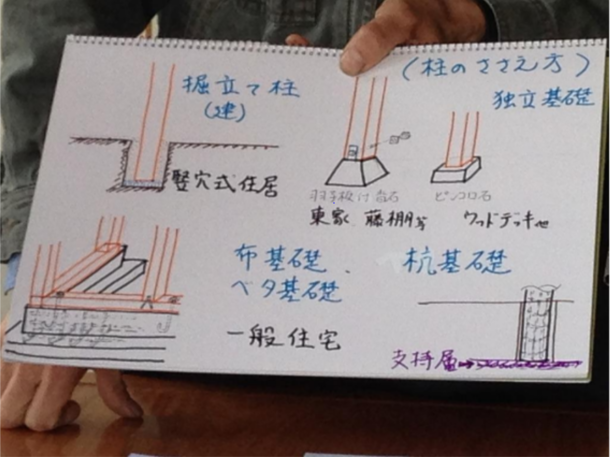 (柱のささえ方)
掘立て柱
(建)
竪穴式住居
独立基礎
羽子板付沓石
ピンコロ石
東家 藤棚等
ウッドデッキ他
布基礎、
ベタ基礎
一般住宅
杭基礎
支持層